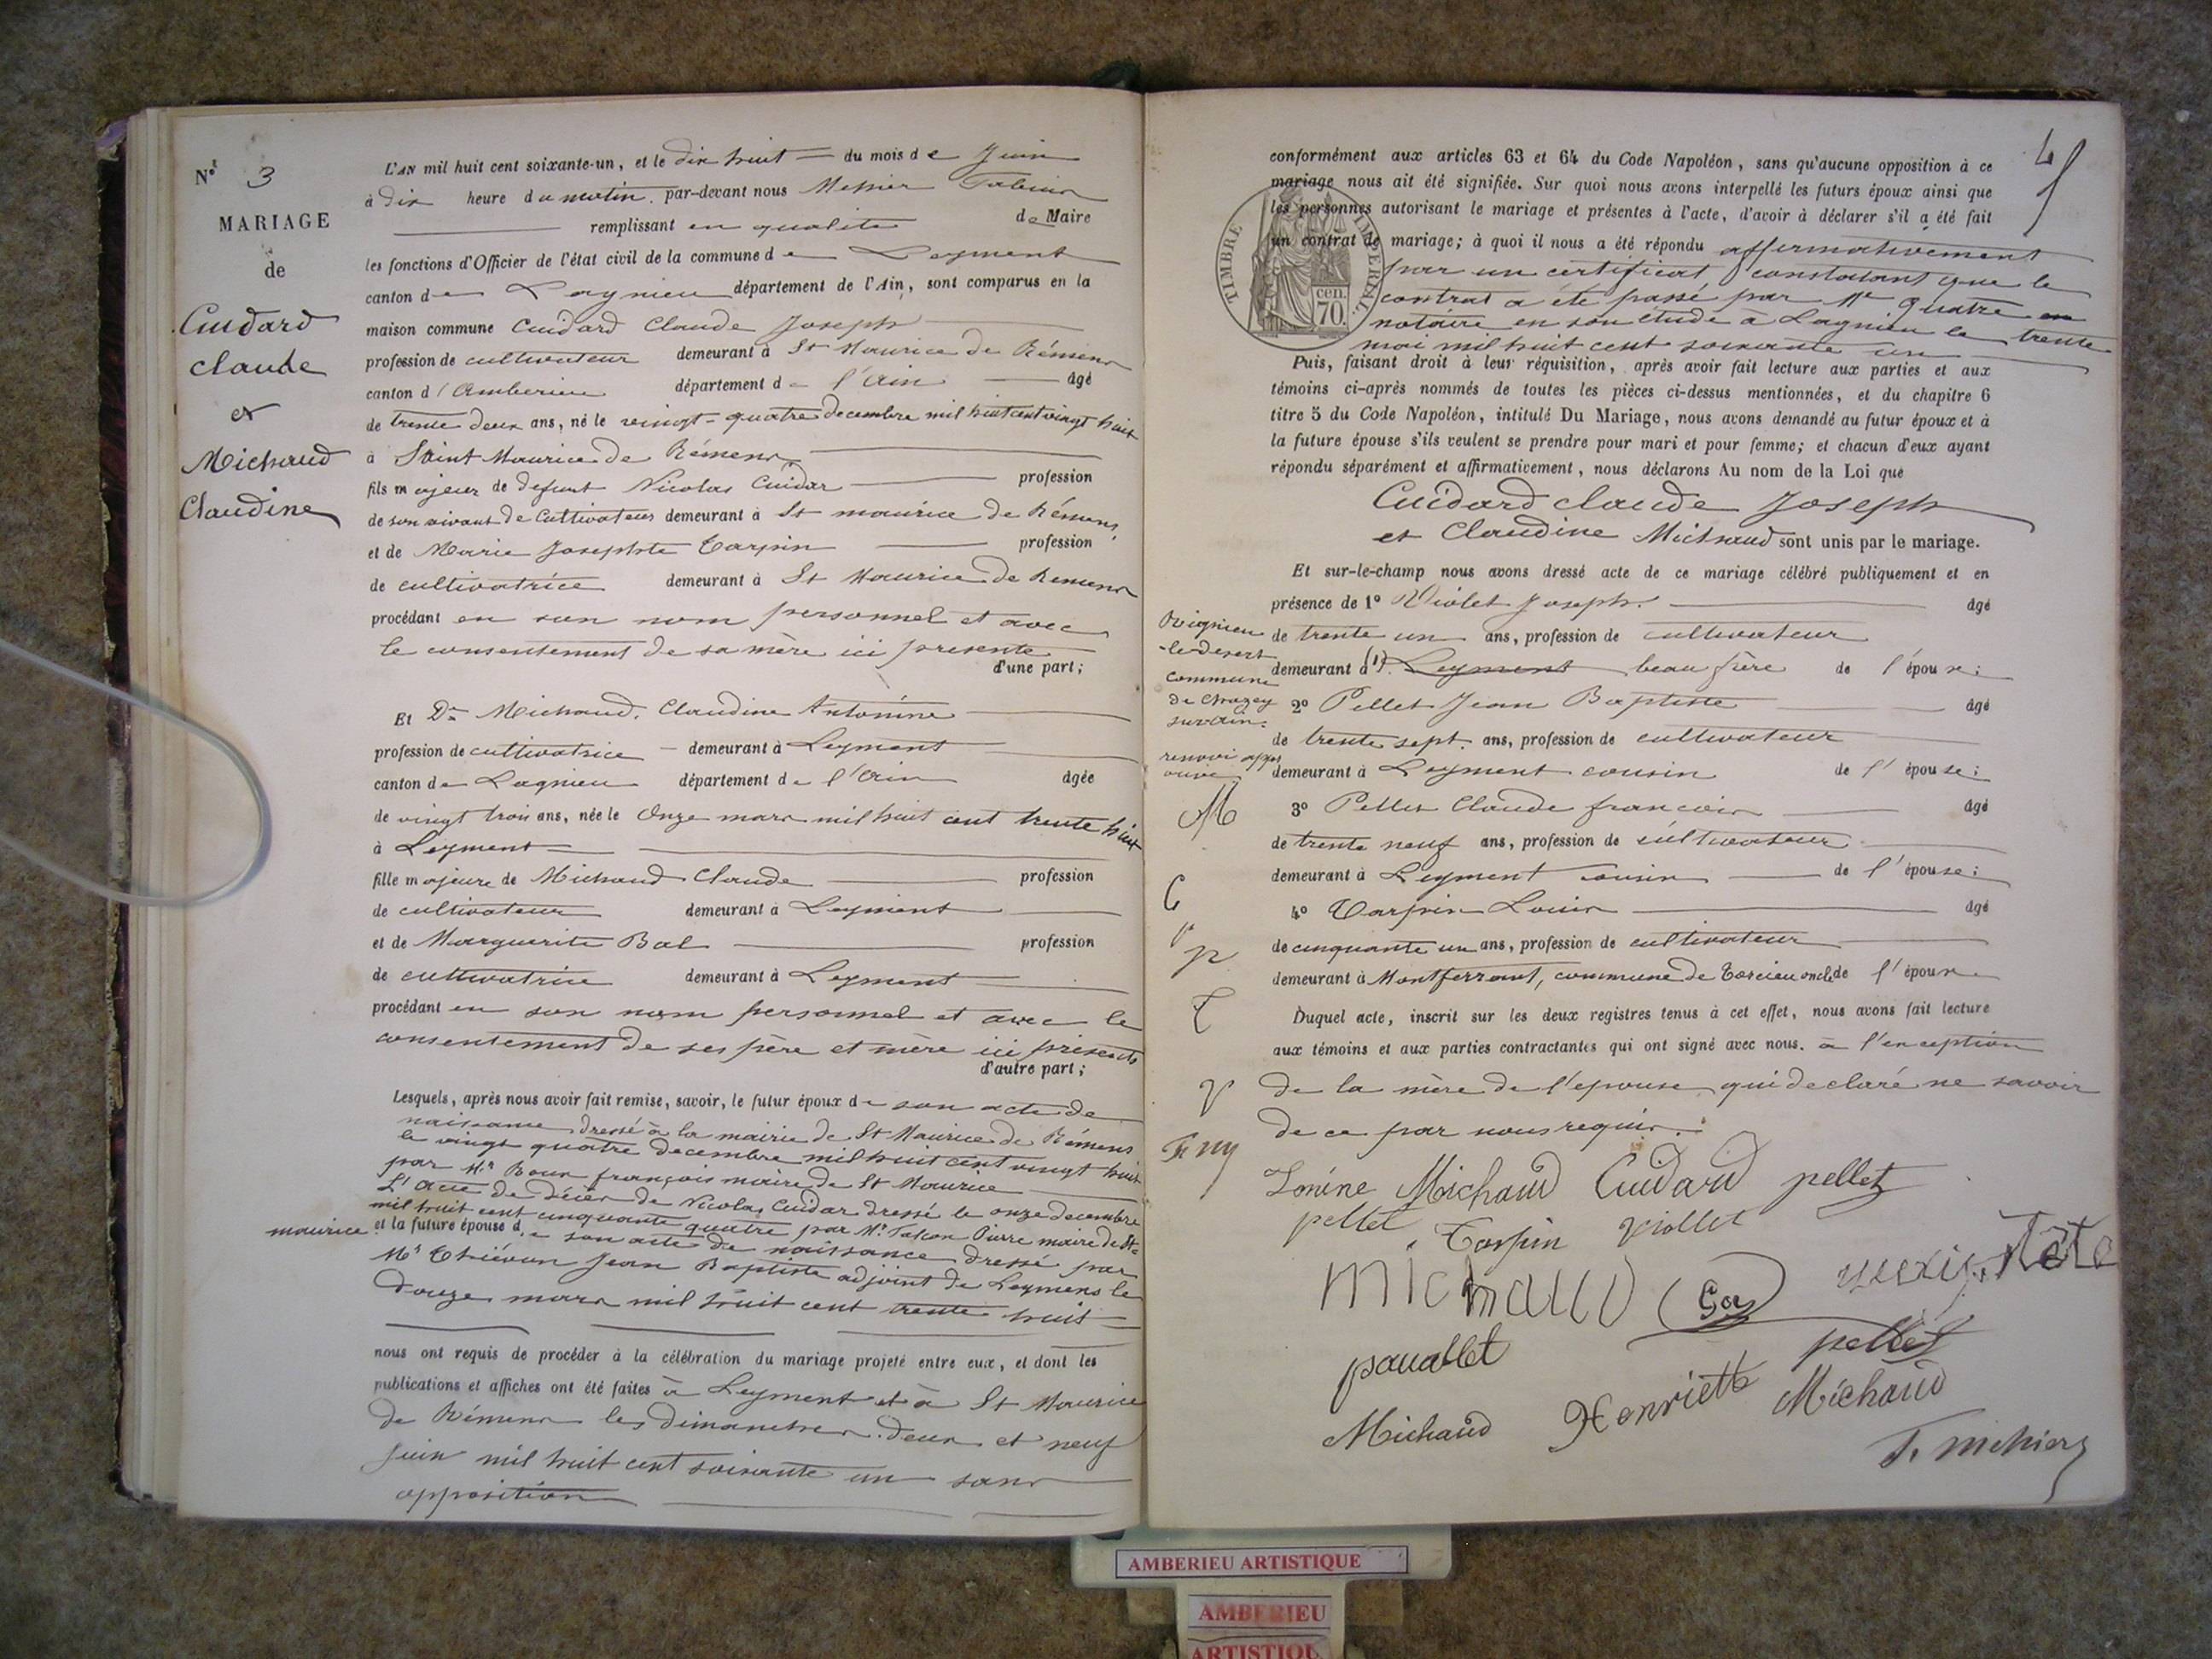 N° 3
MARIAGE
de
Cuidard
claude
et
Michaud
Claudine
L'AN mil huit cent soixante-un, et le dix huit du mois de Juin
à dix heure du matin. par-devant nous Messier
remplissant en qualité de Maire
les fonctions d'Officier de l'état civil de la commune de Leyment
canton de Lagnieu département de l'Ain, sont comparus en la
maison commune Cuidard Claude Joseph
profession de cultivateur demeurant à St Maurice de Rémens
canton d'Amberieu département de l'Ain âgé
de trente deux ans, né le veingt-quatre decembre mil huit cent vingt huit
à Saint Maurice de Rémens
fils majeur de defunt Nicolas Cuidar profession
de son vivant de Cultivateur demeurant à St maurice de Rémens
et de Marie Josephte Tarpin profession
de cultivatrice demeurant à St Maurice de Remens
procédant en son nom personnel et avec
le consentement de sa mère ici presente
d'une part;
Et Dlle Michaud, Claudine Antonine
profession de cultivatrice demeurant à Leyment
canton de Lagnieu département de l'Ain âgée
de vingt trois ans, née le Onze mars mil huit cent trente huit
à Leyment
fille majeure de Michaud Claude profession
de cultivateur demeurant à Leyment
et de Marguerite Bal profession
de cultivatrice demeurant à Leyment
procédant en son nom personnel et avec le
consentement de ses père et mère ici présents
d'autre part;
Lesquels, après nous avoir fait remise, savoir, le futur époux de son acte de
naissance dressé à la mairie de St Maurice de Rémens
le vingt quatre decembre mil huit cent vingt huit
par Mr françois maire de St Maurice
L'Acte de décès de Nicolas Cuidar dressé le onze decembre
mil huit cent cinquante quatre par Mr Pierre maire de St-
maurice et la future épouse de son acte de naissance dressé par
Mr Jean Baptiste adjoint de Leyment le
douze mars mil huit cent trente huit
nous ont requis de procéder à la célébration du mariage projeté entre eux, et dont les
publications et affiches ont été faites à Leyment et à St Maurice
de Rémens les dimanches deux et neuf
Juin mil huit cent soixante un sans
opposition
4
conformément aux articles 63 et 64 du Code Napoléon, sans qu'aucune opposition à ce
mariage nous ait été signifiée. Sur quoi nous avons interpellé les futurs époux ainsi que
les personnes autorisant le mariage et présentes à l'acte, d'avoir à déclarer s'il a été fait
un contrat de mariage; à quoi il nous a été répondu affirmativement
par un certificat constatant que le
contrat a été passé par Me Quatre
notaire en son étude à Lagnieu le trente
mai mil huit cent soixante un
TIMBRE IMPERIAL
70 cen.
Puis, faisant droit à leur réquisition, après avoir fait lecture aux parties et aux
témoins ci-après nommés de toutes les pièces ci-dessus mentionnées, et du chapitre 6
titre 5 du Code Napoléon, intitulé Du Mariage, nous avons demandé au futur époux et à
la future épouse s'ils veulent se prendre pour mari et pour femme; et chacun d'eux ayant
répondu séparément et affirmativement, nous déclarons Au nom de la Loi que
Cuidard claude Joseph
et Claudine Michaud sont unis par le mariage.
Et sur-le-champ nous avons dressé acte de ce mariage célébré publiquement et en
présence de 1° Violet Joseph. âgé
de trente un ans, profession de cultivateur
demeurant à (1) Leyment beau frère de l'épouse:
2° Pellet Jean Baptiste âgé
de trente sept. ans, profession de cultivateur
demeurant à Leyment cousin de l'épouse;
3° Pellet Claude françois âgé
de trente neuf ans, profession de cultivateur
demeurant à Leyment cousin de l'épouse;
4° Tarpin Louis âgé
de cinquante un ans, profession de cultivateur
demeurant à Montferrant, commune de Torcieu oncle de l'époux
Rignieu
-le-desert
commune
de Chazey
sur ain.
renvoi app
ouvé
M
C
p
T
V
Duquel acte, inscrit sur les deux registres tenus à cet effet, nous avons fait lecture
aux témoins et aux parties contractantes qui ont signé avec nous. à l'exception
de la mère de l'epouse qui declaré ne savoir
de ce par nous requis.
Michaud Cuidard pellet
pellet Tarpin Viollet
Michaud
pellet
Michaud Henriette Michaud